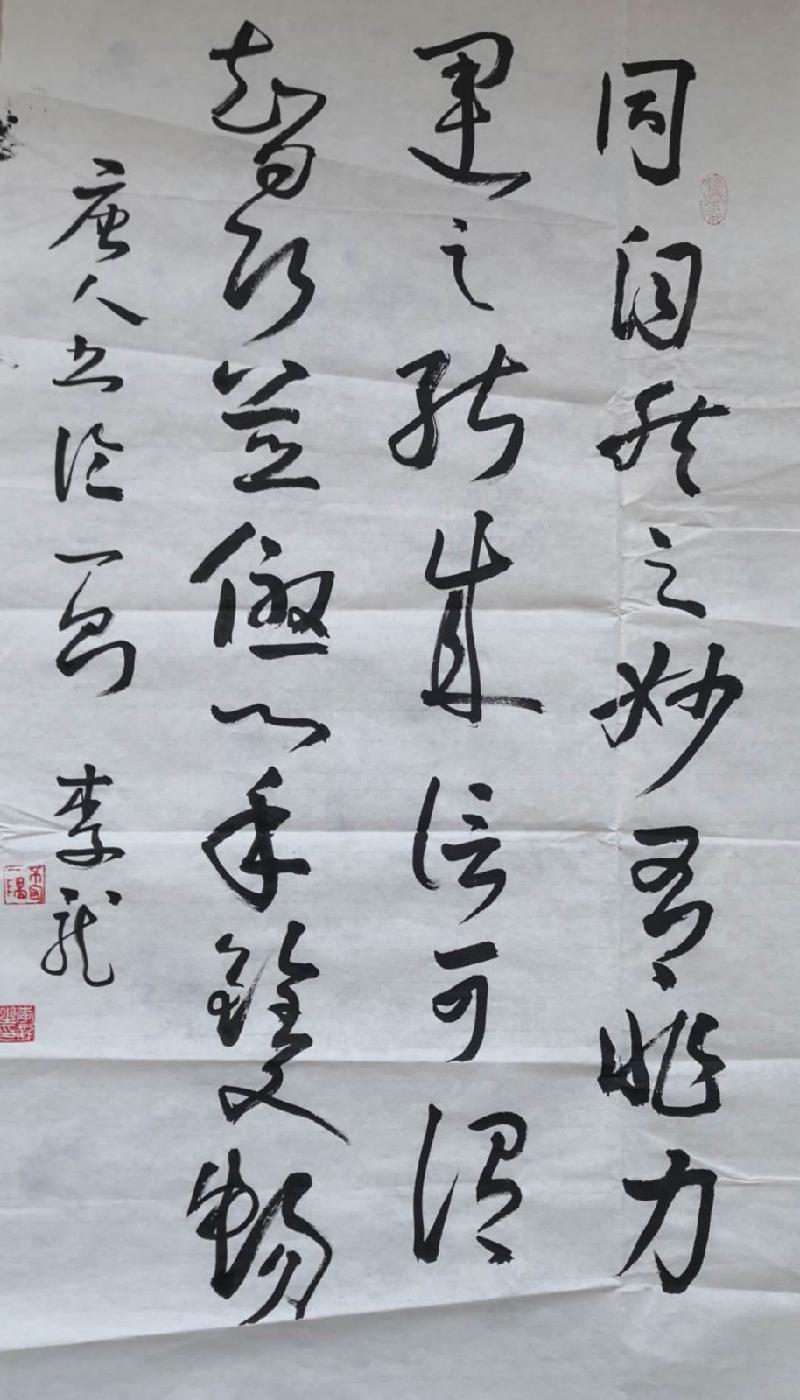 同自然之妙有非力
運之能成信可謂
智巧兼優心手雙暢
唐人書論一 李龍